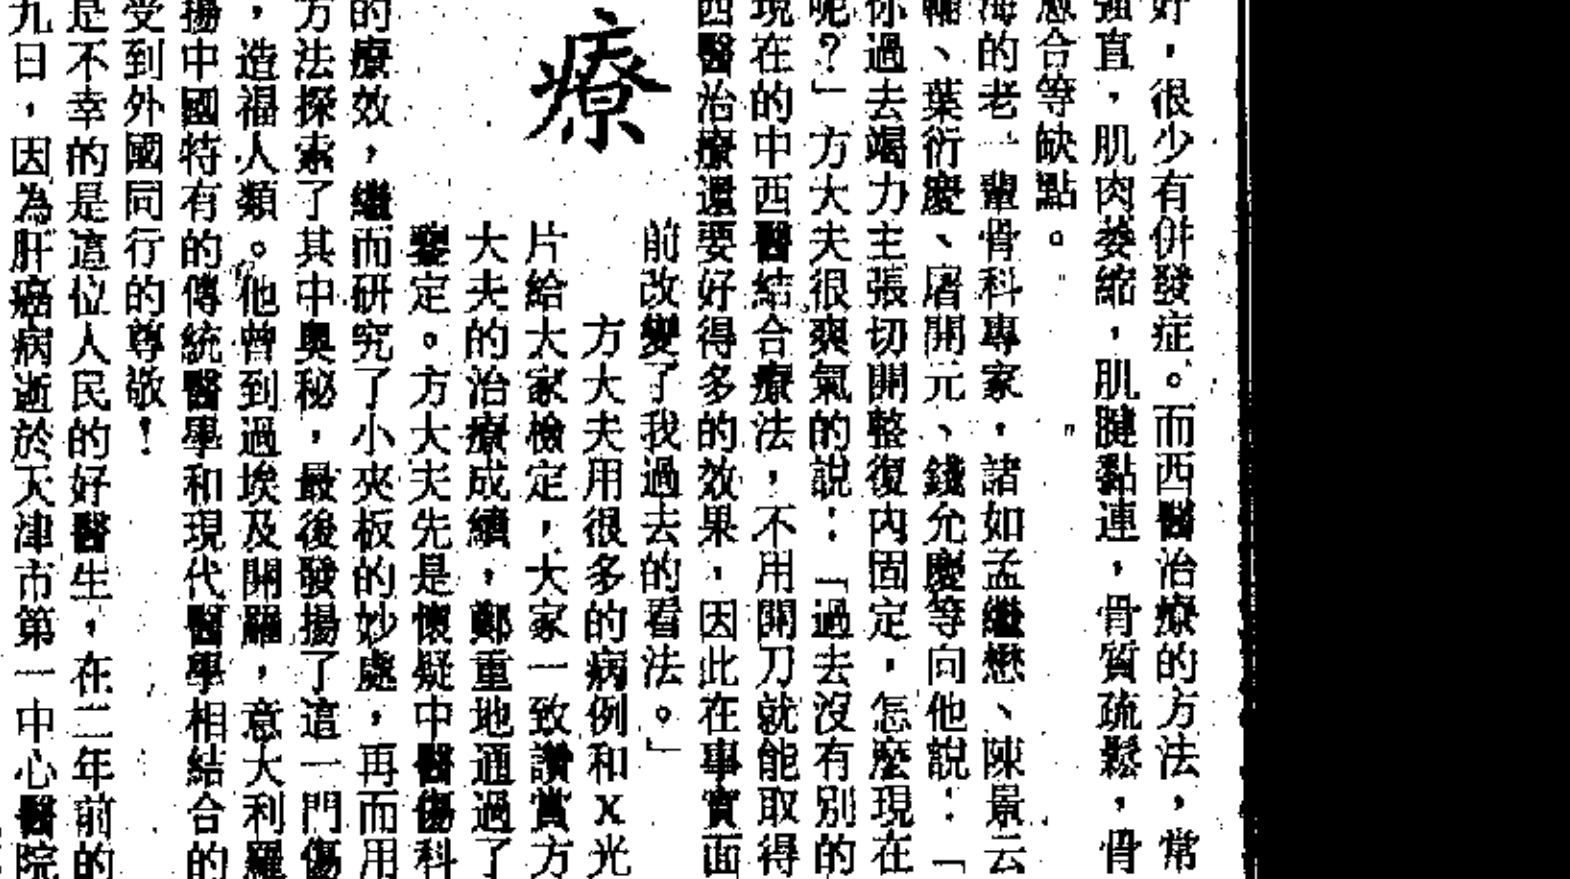 好，很少有併發症。而西醫治療的方法，常
強直，肌肉萎縮，肌腱黏連，骨質疏鬆，骨
癒合等缺點。
海的老一輩骨科專家，諸如孟繼懋、陳景云
輔、葉衍慶、屠開元、錢允慶等向他說：「
你過去竭力主張切開整復內固定，怎麼現在
呢？」方大夫很爽氣的說：「過去沒有別的
現在的中西醫結合療法，不用開刀就能取得
西醫治療還要好得多的效果，因此在事實面
前改變了我過去的看法。」
療
方大夫用很多的病例和X光
片給大家檢定，大家一致讚賞方
大夫的治療成績，鄭重地通過了
鑒定。方大夫先是懷疑中醫傷科
的療效，繼而研究了小夾板的妙處，再而用
方法探索了其中奧秘，最後發揚了這一門傷
，造福人類。他曾到過埃及開羅，意大利羅
揚中國特有的傳統醫學和現代醫學相結合的
受到外國同行的尊敬！
是不幸的是這位人民的好醫生，在二年前的
九日，因為肝癌病逝於天津市第一中心醫院